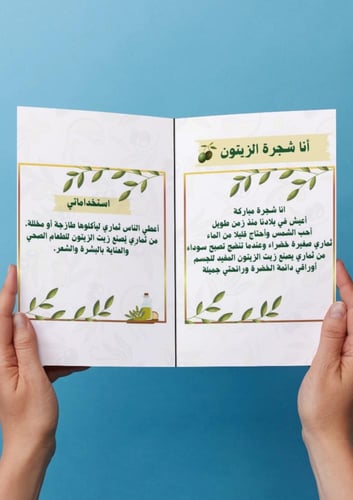 أنا شجرة الزيتون
انا شجرة مباركة
أعيش في بلادنا منذ زمن طويل
أحب الشمس وأحتاج قليلا من الماء
ثماري صغيرة خضراء وعندما تنضج تصبح سوداء
من ثماري يصنع زيت الزيتون المفيد للجسم
أوراقي دائمة الخضرة ورائحتي جميلة
استخداماتي
أعطي الناس ثماري ليأكلوها طازجة أو مخللة.
من ثماري يُصنع زيت الزيتون للطعام الصحي
والعناية بالبشرة والشعر.